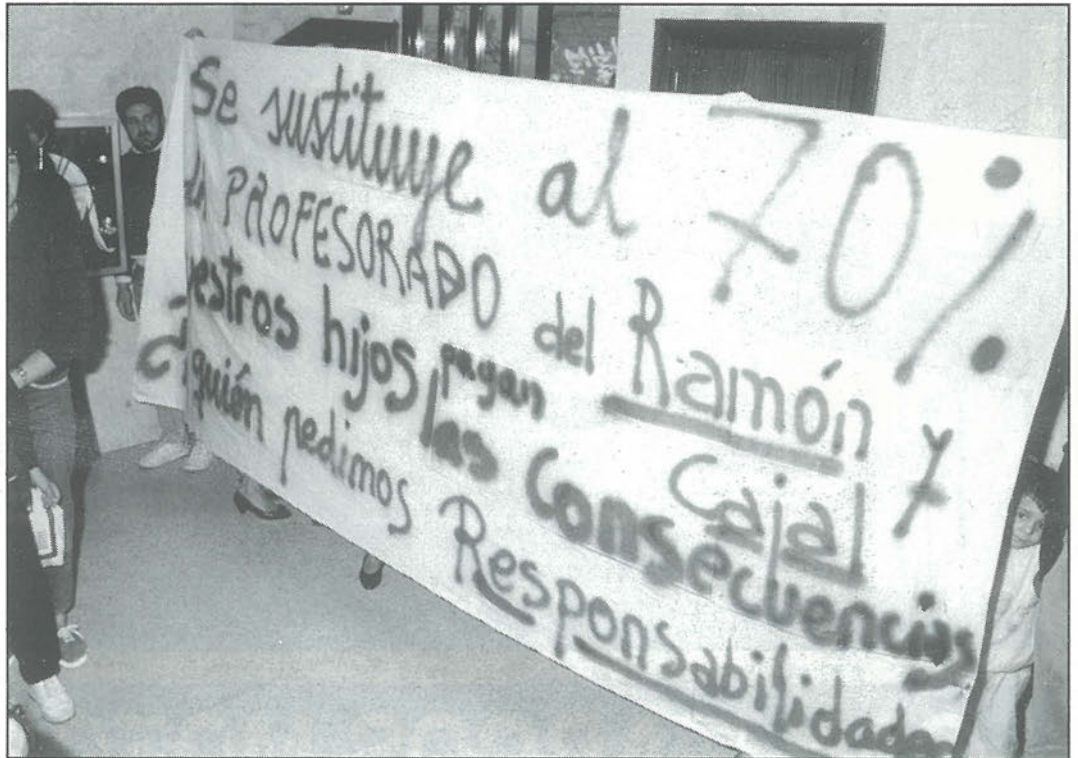 Se sustituye al 70%
del PROFESORADO del Ramón y
Cajal
estros hijos pagan las Consecuencias
¿ quién pedimos Responsabilidades